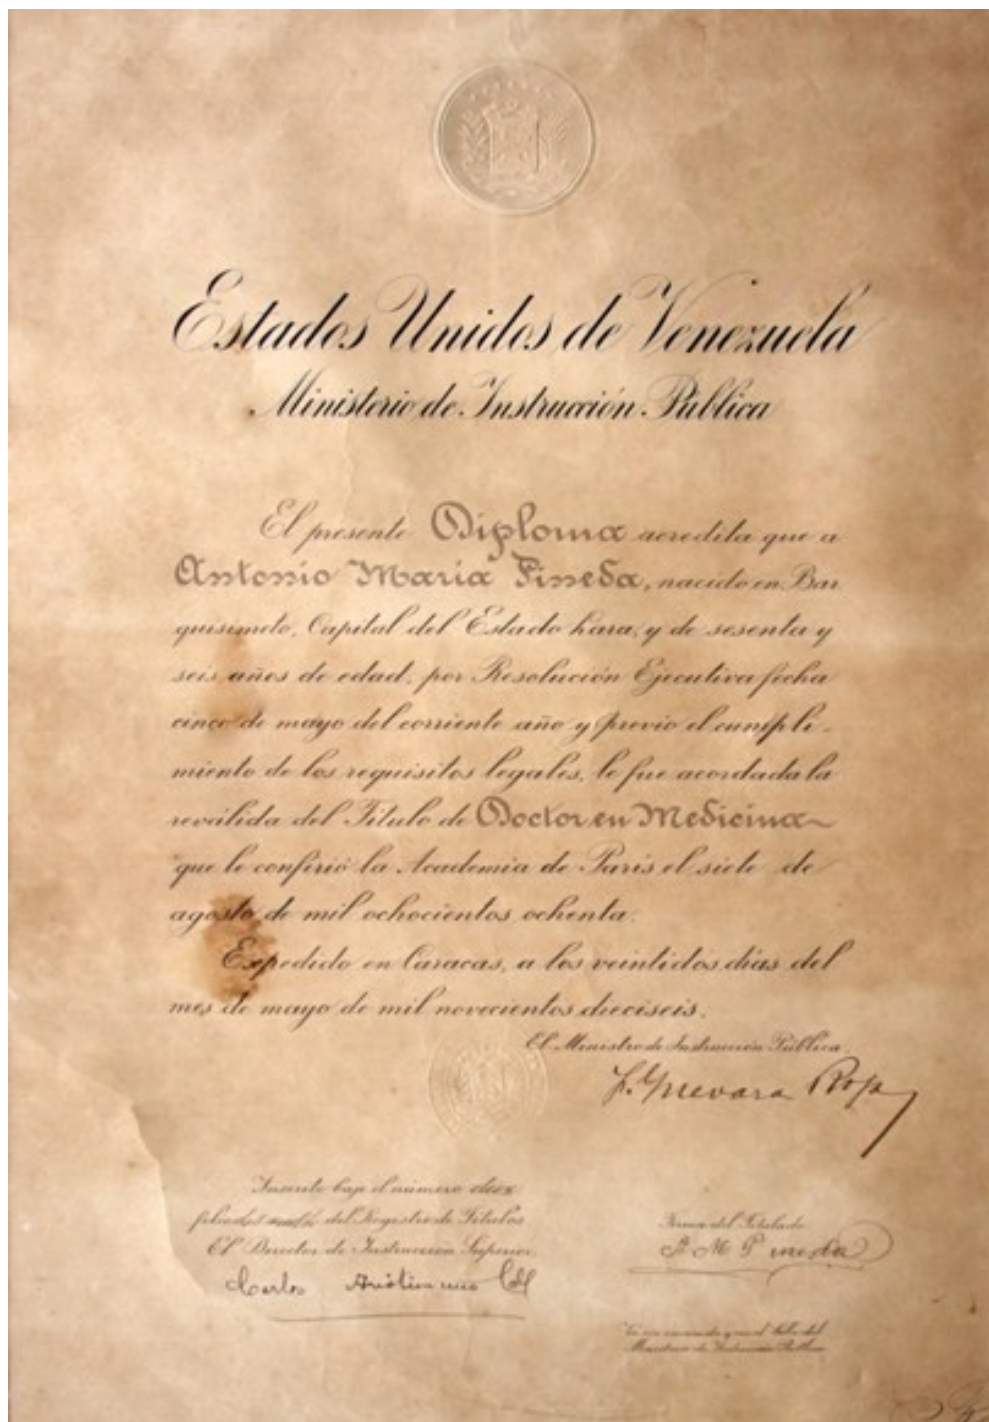 Estados Unidos de Venezuela
Ministerio de Instrucción Pública
El presente Diploma acredita que a
Antonio María Pineda, nacido en Bar
quisimeto, Capital del Estado Lara, y de sesenta y
seis años de edad, por Resolución Ejecutiva fecha
cinco de mayo del corriente año y previo el cumpli-
miento de los requisitos legales, le fue acordada la
reválida del Título de Doctor en Medicina
que le confirió la Academia de París el siete de
agosto de mil ochocientos ochenta.
Expedido en Caracas, a los veintidos días del
mes de mayo de mil novecientos dieciseis.
El Ministro de Instrucción Pública,
F. Guevara Rojas
Inscrito bajo el número
del Registro de Títulos
El Director de Instrucción Superior,
Carlos
Firma del Titulado
A M Pineda
Ministerio de Instrucción Pública